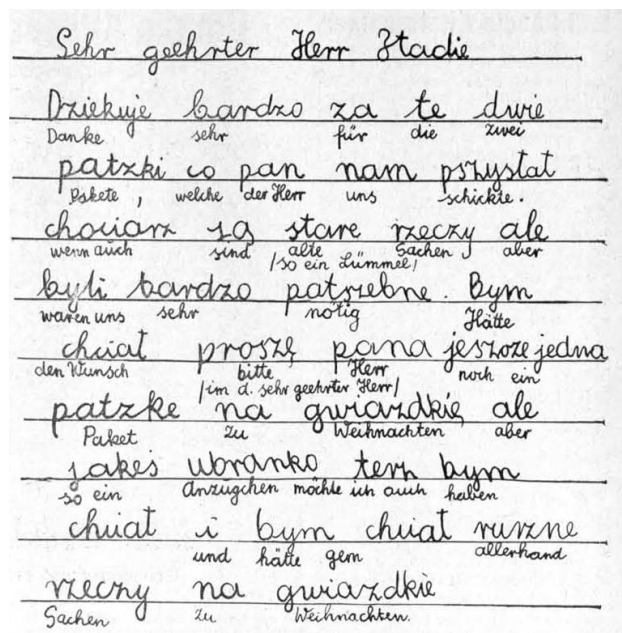 Sehr geehrter Herr Stadie
Dziekuje bardzo za te dwie
Danke sehr für die zwei
patzki co pan nam pszystat
Pakete, welche der Herr uns schickte.
chociarz są stare rzeczy ale
wenn auch sind alte Sachen, aber
/so ein Lümmel/
byli bardzo patszebne. Bym
waren uns sehr nötig Hätte
chciat proszę pana jeszoze jedna
den Wunsch bitte Herr noch ein
/im d. sehr geehrter Herr/
patzke na gwiazdkie, ale
Paket zu Weihnachten aber
jakeś ubranko terz bym
so ein Anzügchen möchte ich auch haben
chciat i bym chciat rurzne
und hätte gern allerhand
rzeczy na gwiazdkie
Sachen zu Weihnachten.